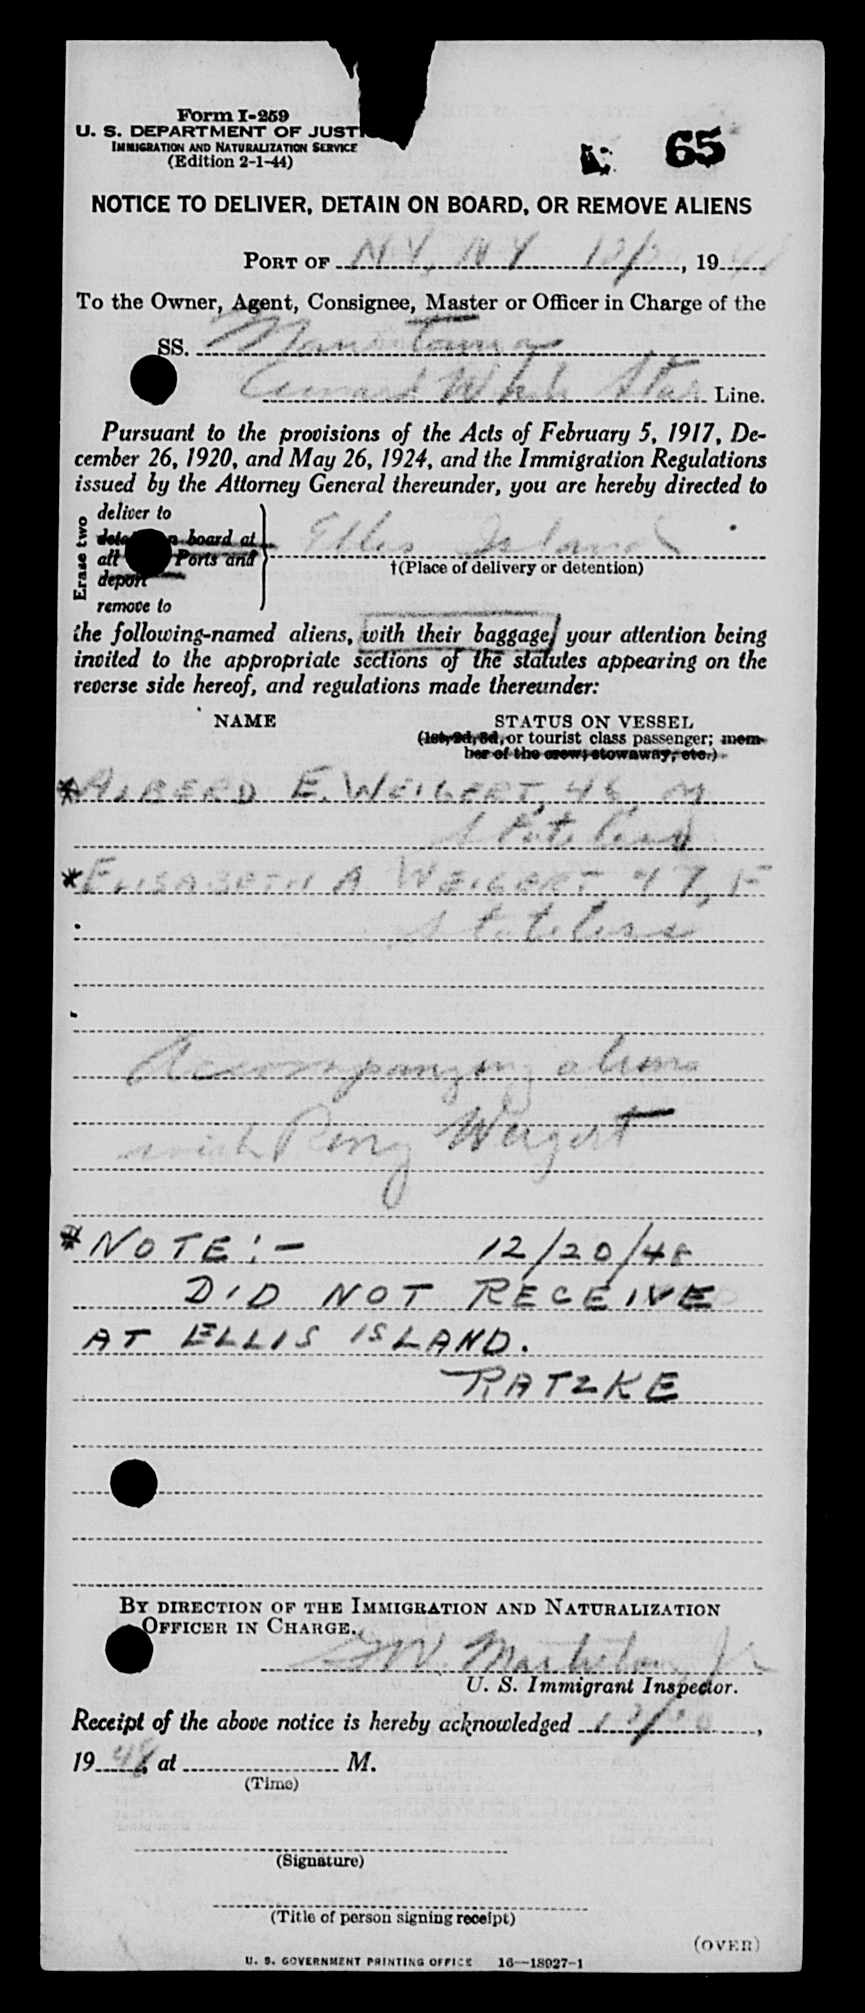 Form I-259
U. S. DEPARTMENT OF JUSTI
IMMIGRATION AND NATURALIZATION SERVICE
(Edition 2-1-44)
65
NOTICE TO DELIVER, DETAIN ON BOARD, OR REMOVE ALIENS
PORT OF N Y, N Y 12/20, 1948
To the Owner, Agent, Consignee, Master or Officer in Charge of the
SS.
Cunard White Star Line.
Pursuant to the provisions of the Acts of February 5, 1917, De-
cember 26, 1920, and May 26, 1924, and the Immigration Regulations
issued by the Attorney General thereunder, you are hereby directed to
Erase two
deliver to
detain on board at
all Ports and
deport
remove to
Ellis Island
†(Place of delivery or detention)
the following-named aliens, with their baggage, your attention being
invited to the appropriate sections of the statutes appearing on the
reverse side hereof, and regulations made thereunder:
NAME STATUS ON VESSEL
(1st, 2d, 3d, or tourist class passenger; mem-
ber of the crew; stowaway, etc.)
* ALBERD E. WEIGERT, 48, M
Stateless
* ELISABETH A WEIGERT 47, F
Stateless
Accompanying aliens
with Weigert
* NOTE:- 12/20/48
DID NOT RECEIVE
AT ELLIS ISLAND.
RATZKE
BY DIRECTION OF THE IMMIGRATION AND NATURALIZATION
OFFICER IN CHARGE.
U. S. Immigrant Inspector.
Receipt of the above notice is hereby acknowledged 12/20,
1948, at M.
(Time)
(Signature)
(Title of person signing receipt)
(OVER)
U. S. GOVERNMENT PRINTING OFFICE 16—18027-1